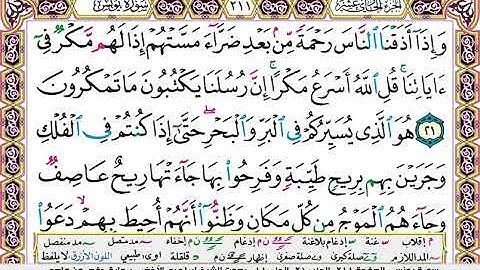 الجزء الحادي عشر ٢١١ سورة يونس
وَإِذَا أَذَقْنَا ٱلنَّاسَ رَحْمَةً مِّنۢ بَعْدِ ضَرَّآءَ مَسَّتْهُمْ إِذَا لَهُم مَّكْرٌ فِىٓ
ءَايَاتِنَا ۚ قُلِ ٱللَّهُ أَسْرَعُ مَكْرًا ۚ إِنَّ رُسُلَنَا يَكْتُبُونَ مَا تَمْكُرُونَ
٢١ هُوَ ٱلَّذِى يُسَيِّرُكُمْ فِى ٱلْبَرِّ وَٱلْبَحْرِ ۖ حَتَّىٰٓ إِذَا كُنتُمْ فِى ٱلْفُلْكِ
وَجَرَيْنَ بِهِم بِرِيحٍ طَيِّبَةٍ وَفَرِحُوا۟ بِهَا جَآءَتْهَا رِيحٌ عَاصِفٌ
وَجَآءَهُمُ ٱلْمَوْجُ مِن كُلِّ مَكَانٍ وَظَنُّوٓا۟ أَنَّهُمْ أُحِيطَ بِهِمْ ۙ دَعَوُا۟
إقلاب غنة إدغام بلاغنة إدغام إخفاء مد متصل مد منفصل
المد اللازم صلة كبرى صلة صغرى إظهار قلقلة لا يلفظ